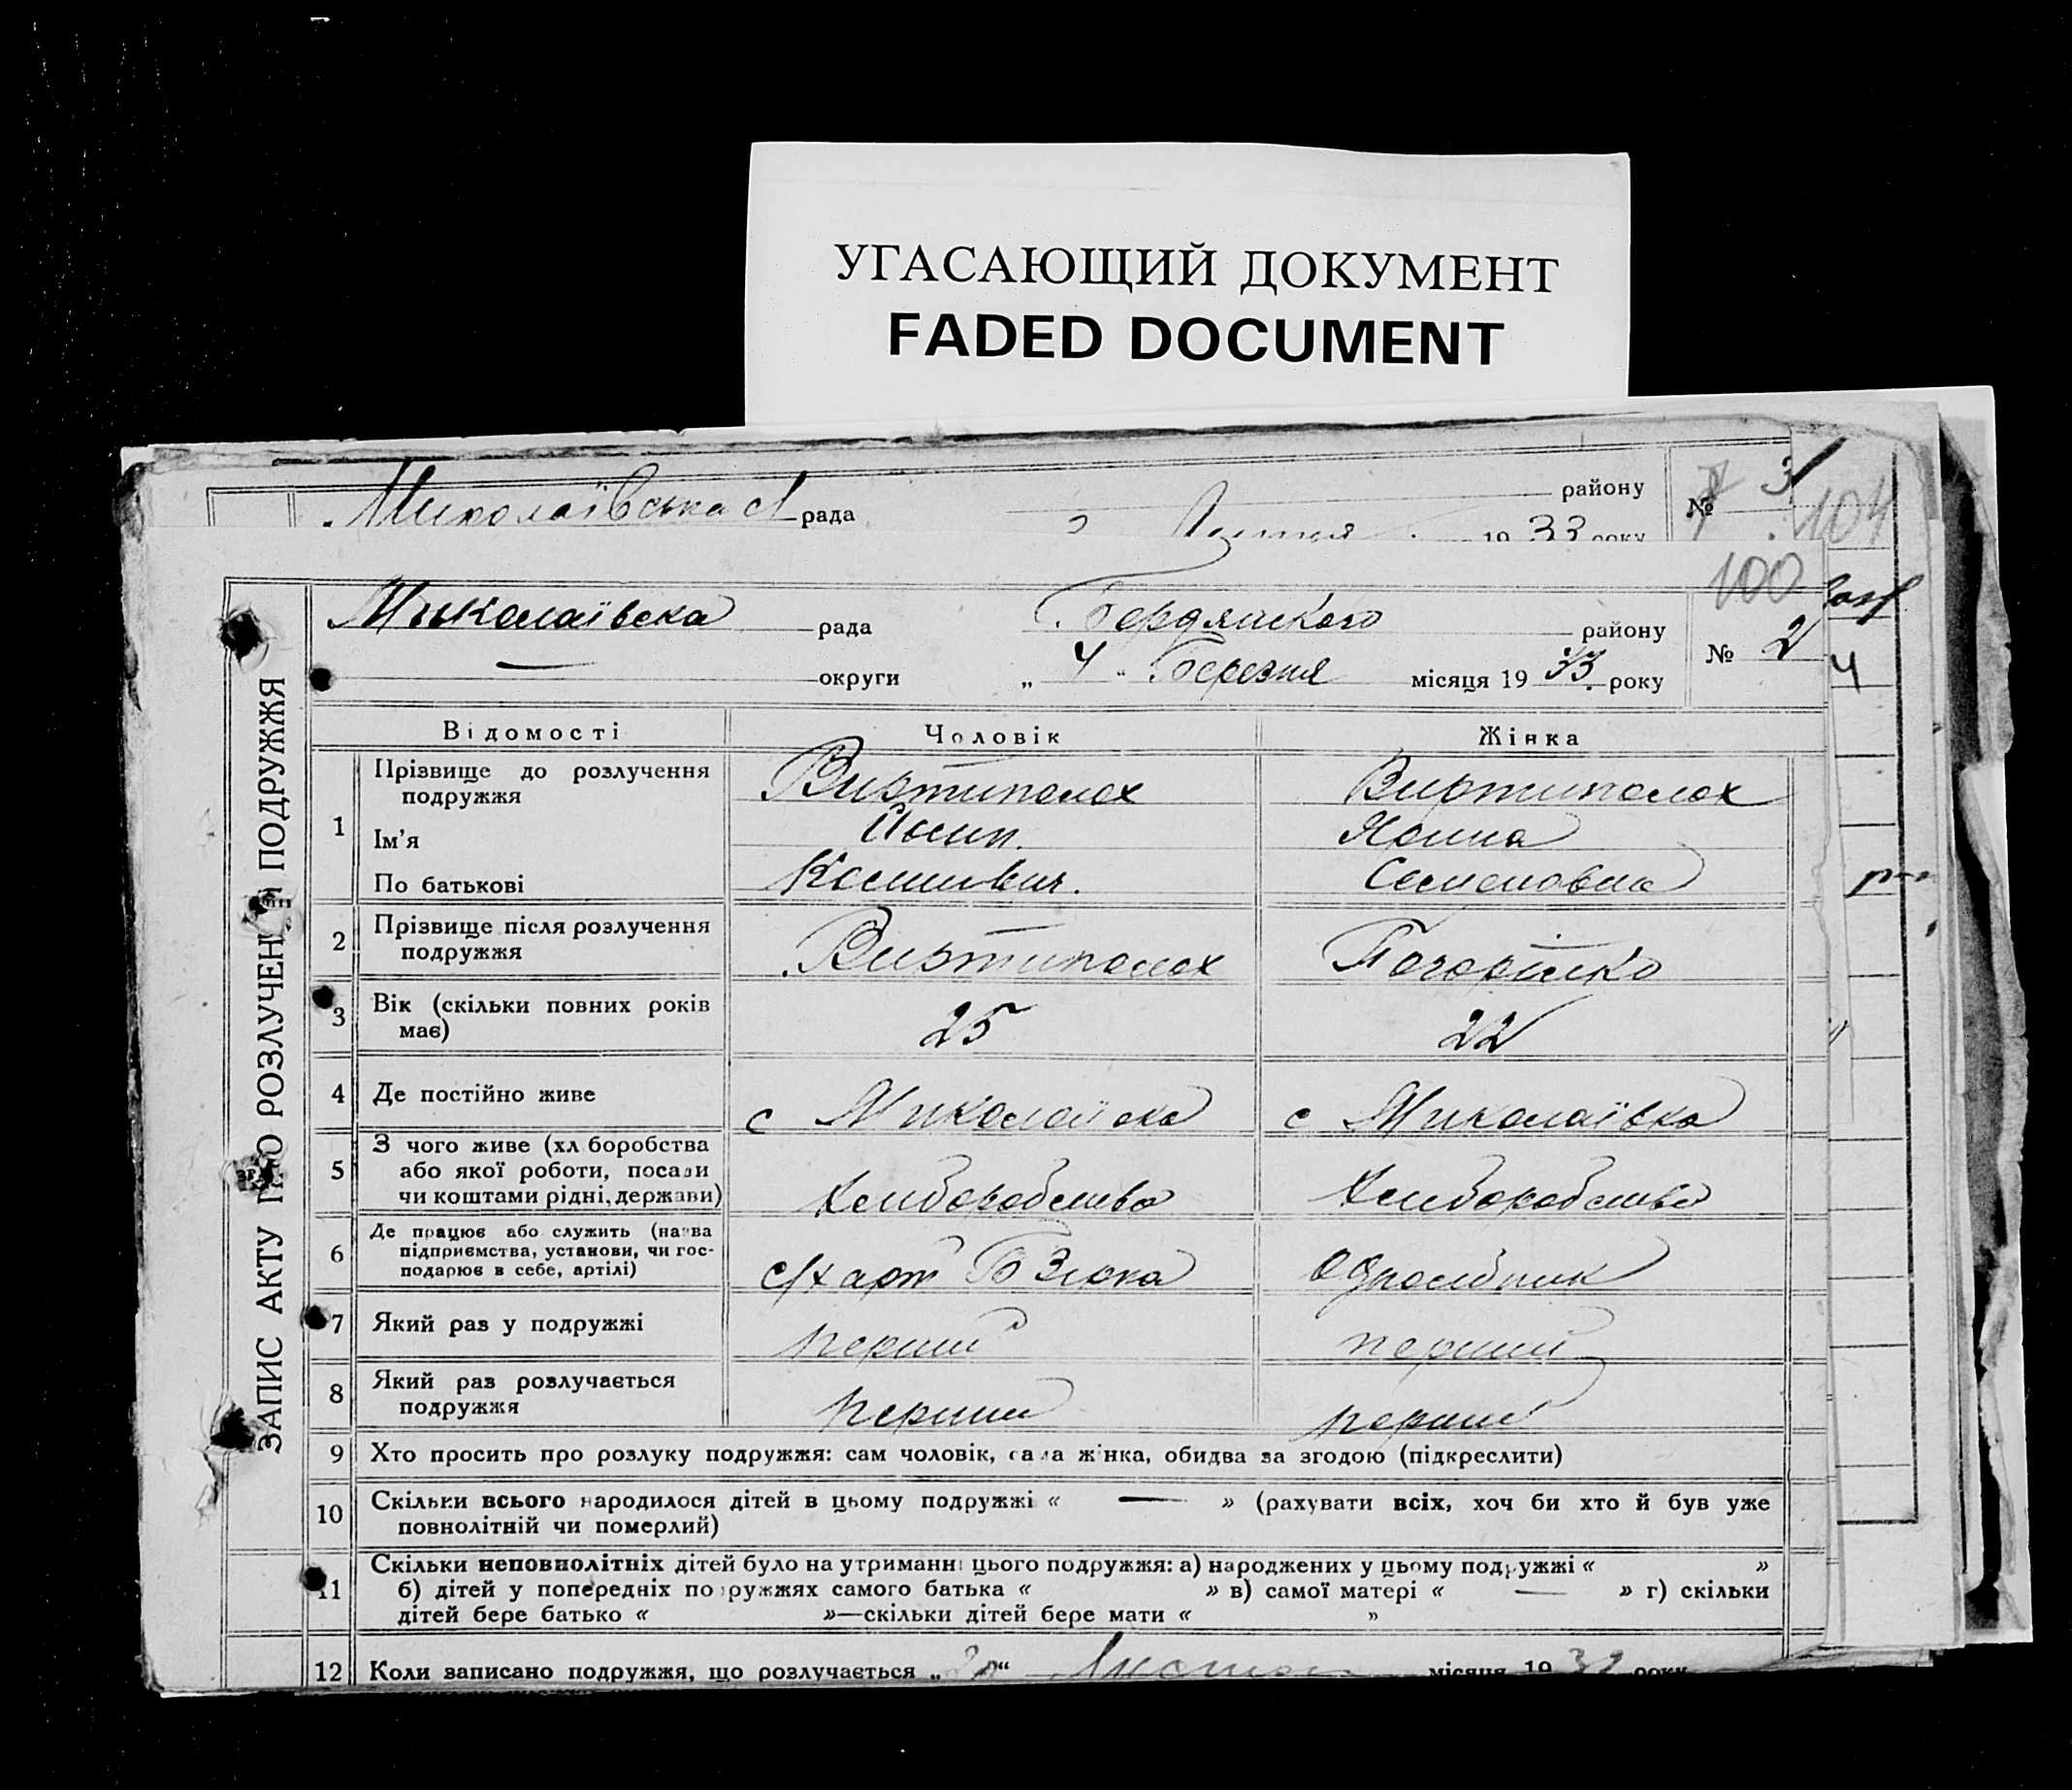 УГАСАЮЩИЙ ДОКУМЕНТ
FADED DOCUMENT
Миколаївська рада району № 3
104
19 33 року
100
Миколаївска рада Бердянского району № 2
— округи „ 4 “ Березня місяця 19 33 року
ЗАПИС АКТУ ПРО РОЗЛУЧЕННЯ ПОДРУЖЖЯ
Відомості Чоловік Жінка
1 Прізвище до розлучення подружжя Виртиполох Виртиполох
Ім'я Йосип.
По батькові Семеновна
2 Прізвище після розлучення подружжя Виртиполох
3 Вік (скільки повних років має) 25 22
4 Де постійно живе с Миколаївка с Миколаївка
5 З чого живе (хліборобства або якої роботи, посади чи коштами рідні, держави) Хлиборобство Хлиборобство
6 Де працює або служить (назва підприємства, установи, чи господарює в себе, артілі) с/х арт
7 Який раз у подружжі перший перший
8 Який раз розлучається подружжя перший перший
9 Хто просить про розлуку подружжя: сам чоловік, сама жінка, обидва за згодою (підкреслити)
10 Скільки всього народилося дітей в цьому подружжі « — » (рахувати всіх, хоч би хто й був уже
повнолітній чи померлий)
11 Скільки неповнолітніх дітей було на утриманні цього подружжя: а) народжених у цьому подружжі « »
б) дітей у попередніх подружжях самого батька « » в) самої матері « — » г) скільки
дітей бере батько « »—скільки дітей бере мати « »
12 Коли записано подружжя, що розлучається „ “ місяця 19 32 року